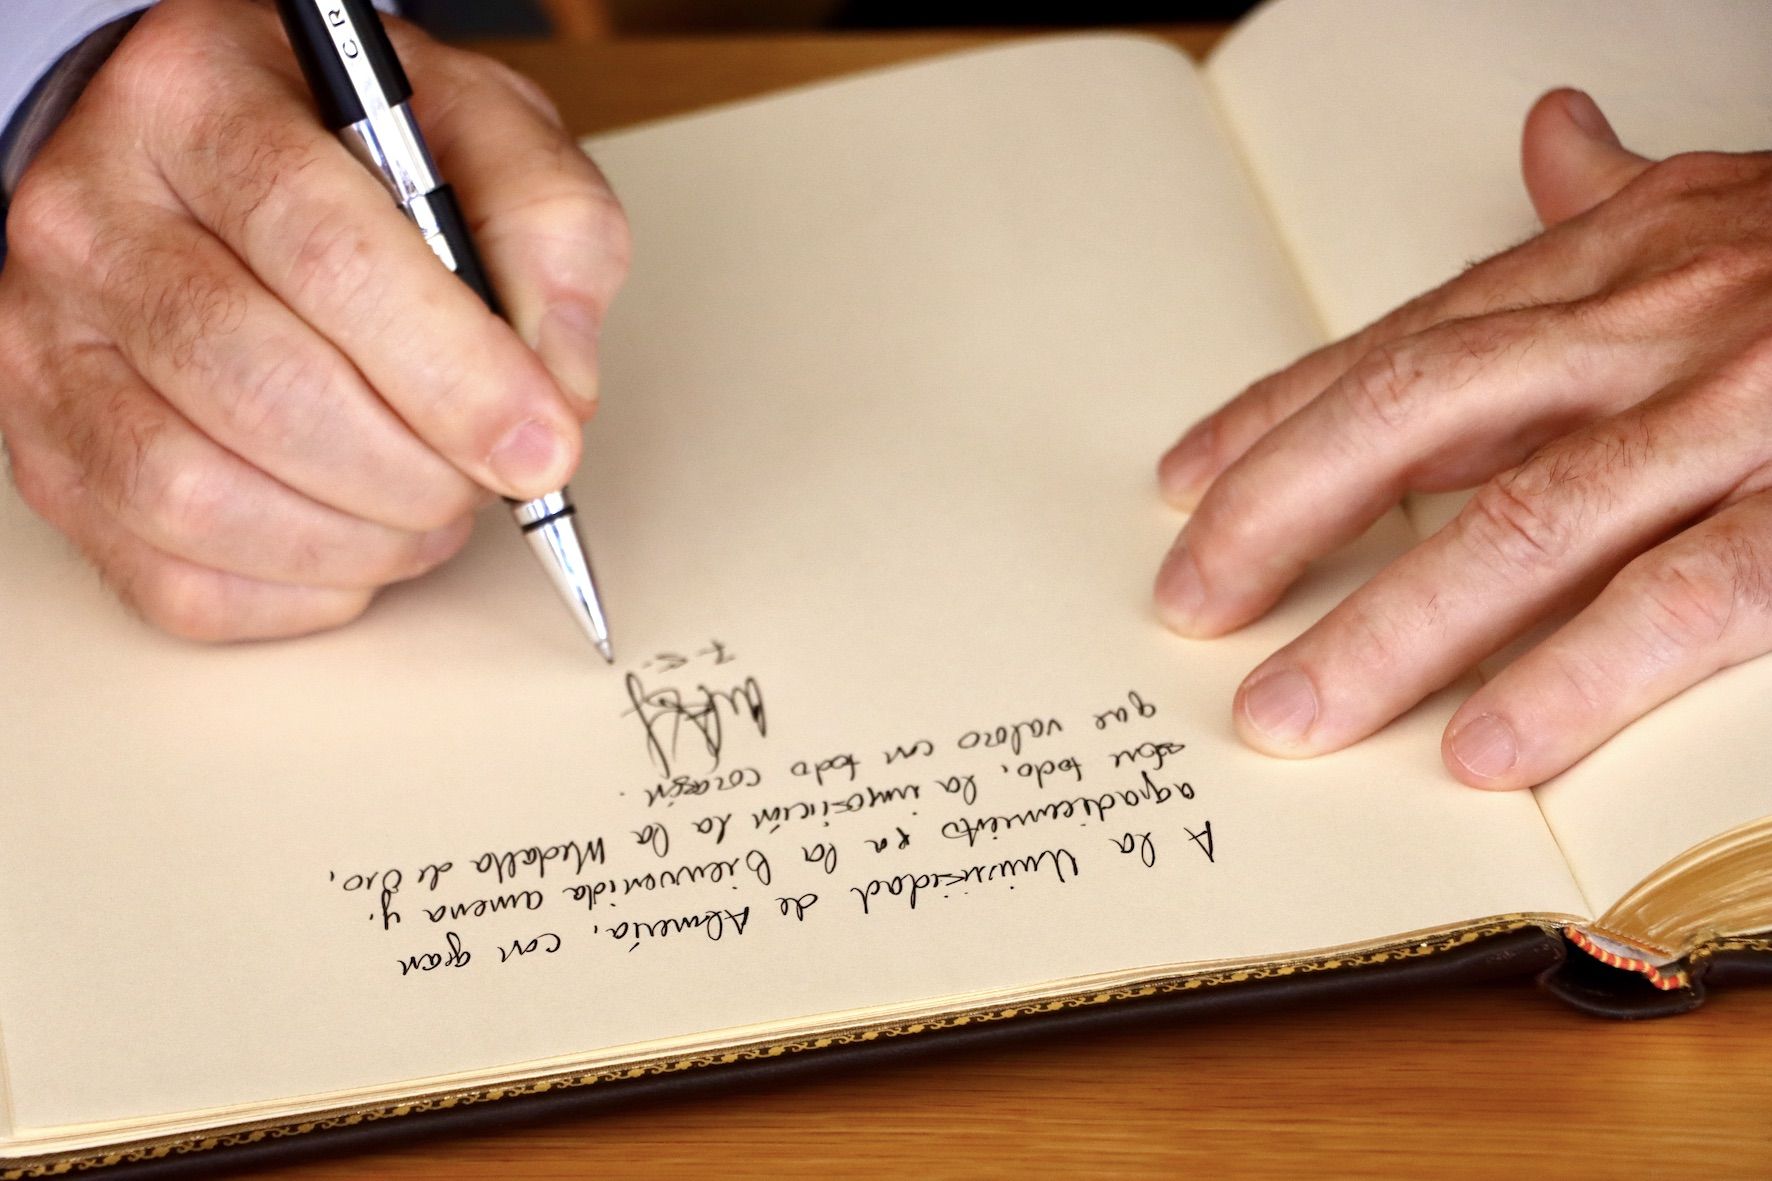 A la Universidad de Almería, con gran
agradecimiento x a la bienvenida amena y,
sobre todo, la imposición la la Medalla de Oro,
que valoro con todo corazón.
7-5-
CR